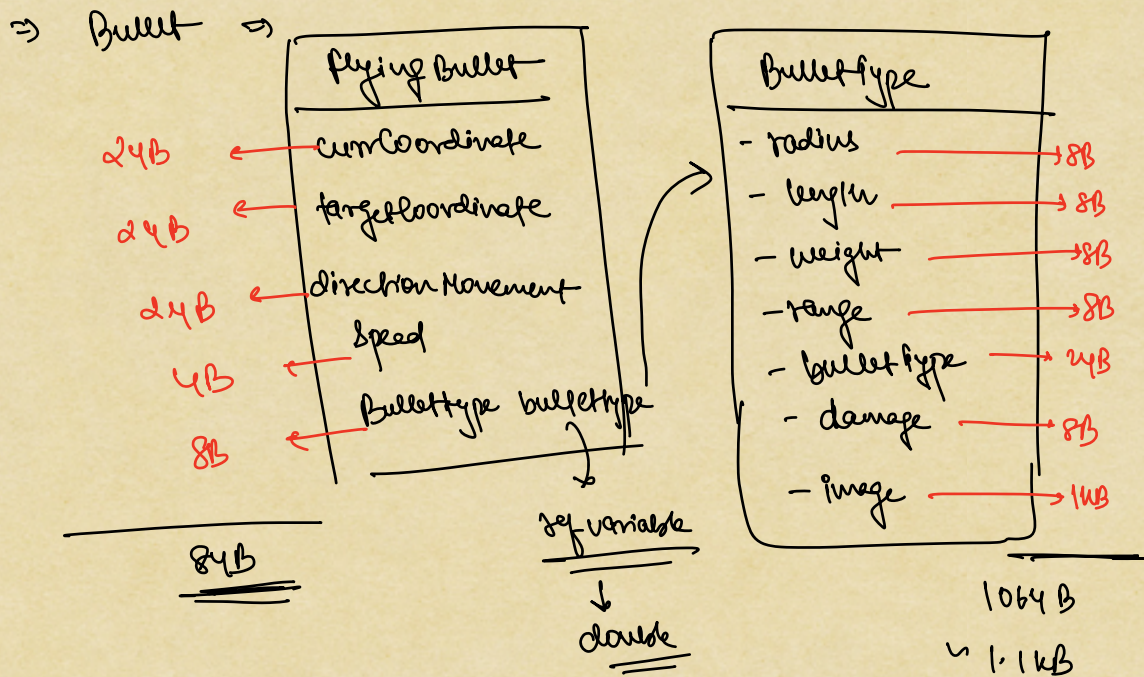 ⇒ Bullet ⇒
flying Bullet
24B ← currCoordinate
24B ← targetCoordinate
24B ← directionMovement
4B ← Speed
8B ← Bullettype bullettype
84B
ref variable
↓
double
Bullettype
- radius → 8B
- length → 8B
- weight → 8B
- range → 8B
- bullettype → 24B
- damage → 8B
- image → 1KB
1064 B
~ 1.1 KB